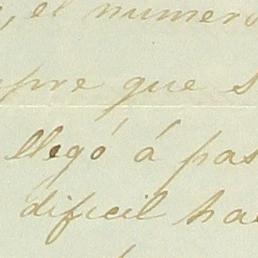 , el numer
pre que s
llegó á pas
dificil ha